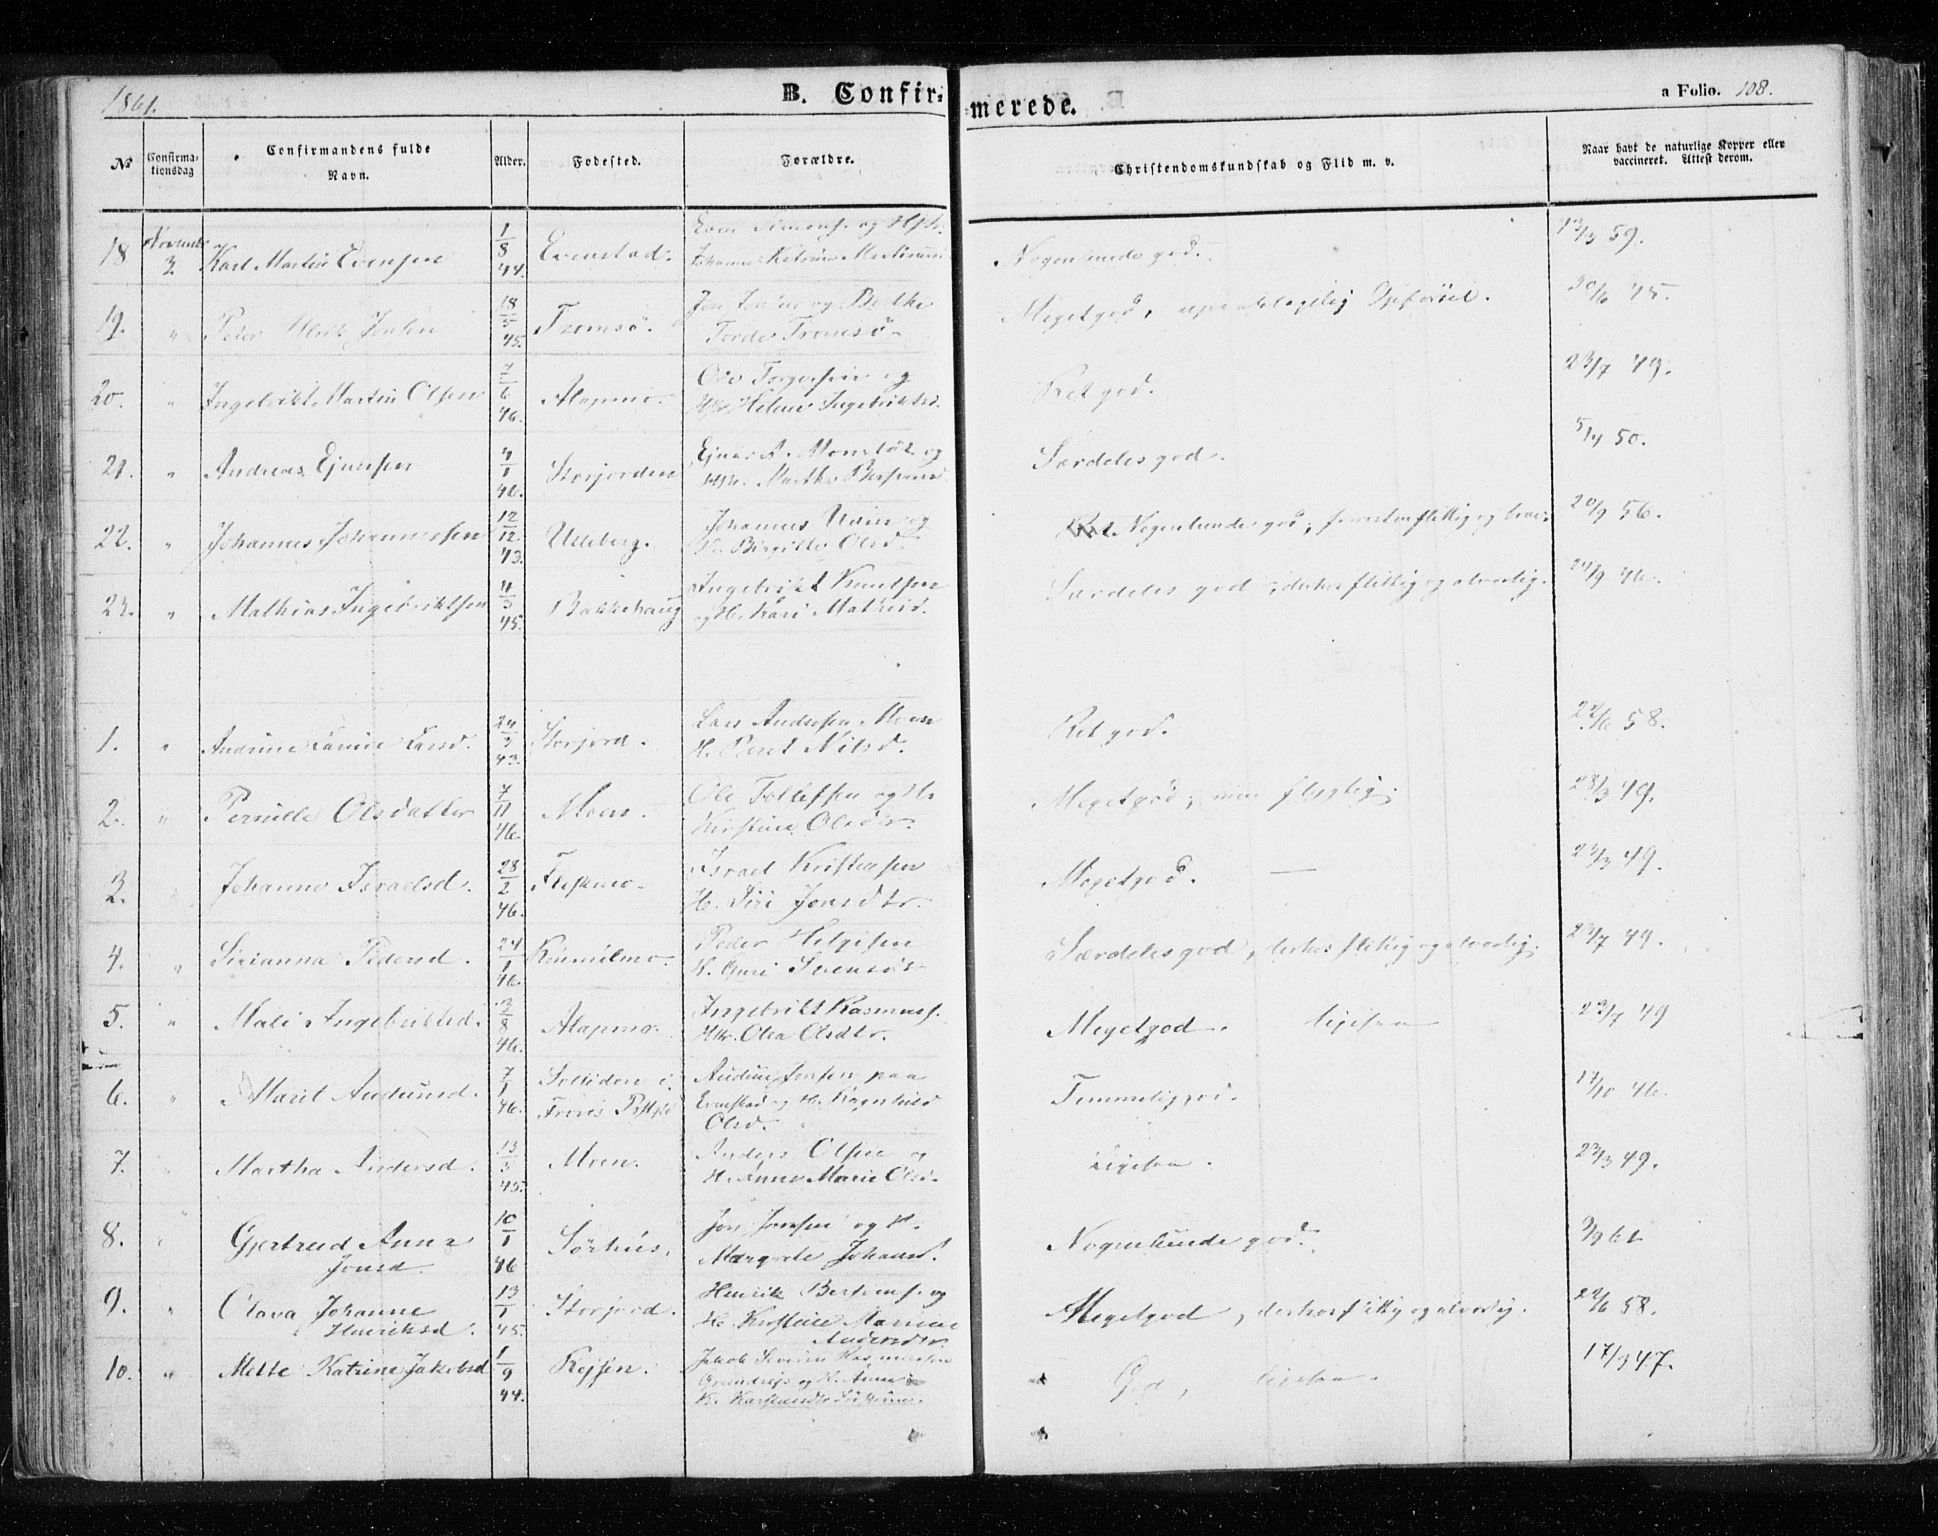 1861.
B. Confirmerede.
a Folio. 108.
No
Confirmationsdag
Confirmandens fulde Navn.
Alder.
Fødested.
Forældre.
Christendomskundskab og Flid m. v.
Naar havt de naturlige Kopper eller vaccineret. Attest derom.
18 Novembr 3. Karl Martin Evensen 1/8 44. Evenstad. Even Simons. og Hstr. Johanna Katrine Nogenlunde god. 13/3 59.
19. " Peder Ulrik Jensen 18/5 45. Tromsø. og Tromsø Meget god, Opførsel. 45.
20. " Ingebrikt Martin Olsen 7/6 46. Alapmo. Ole Torgersen og Hstr Helene Ingebriktsd. Ret god. 23/7 49.
21. " Andreas Ejnersen 4/1 46. Storjorden Ejner A. og Hstr. Martha Særdeles god. 50.
22. " Johannes Johannessen 12/12 43. Uleberg. Johannes og H. Birgitte Olsd. Nogenlunde god, forresten flittig og brav. 20/9 56.
23. " Mathias Ingebriktsen 4/3 45. Bakkehaug Ingebrikt Knutsen og H. Kari Mathisd. Særdeles god, derhos flittig og alvorlig. 24/9 46.
1. " Andrine Larsd. 24/3 43. Storjord. Lars Andersen Moen H. Beret Nilsd. Ret god. 22/6 58.
2. " Pernille Olsdatter 7/11 46. Moen. Ole Tollefsen og H. Kirstine Olsdtr. Meget god, 28/3 49.
3. " Johanna Israelsd. 28/2 46. Fleskmo. Israel Kristensen H. Siri Jonsdtr. Meget god. — 23/3 49.
4. " Sirianna Pedersd. 24/1 46. Kummelmo. Peder Helgesen H. Guri Særdeles god, derhos flittig og alvorlig. 23/7 49.
5. " Mali Ingebriktsd. 3/8 46. Alapmo. Ingebrikt Rasmuss. Hstr. Olea Olsdtr. Meget god. ligesaa 23/7 49
6. " Marit Audunsd. 7/1 46. Sollidøn i Audun Jonsen paa Evenstad og H. Ragnhild Olsd. Temmelig god. 17/10 46.
7. " Martha Andersd. 13/3 45. Moen. Anders Olsen og H. Anne Marie Olsd. Ligesaa. 23/3 49.
8. " Gjertrud Anna Jonsd. 10/1 46 Sørhus. Jon Jonsen og H. Margrete Johansd. Nogenlunde god. 9/9 61
9. " Olava Johanne Henriksd. 13/1 45. Storjord. Henrik og H. Kirstine Andersdtr. Meget god, derhos flittig og alvorlig. 22/6 58.
10. " Mette Katrine Jakobsd 1/9 44. Rejsen. Jakob Severin Rasmussen og H. Anne God, ligesaa. 17/9 47.